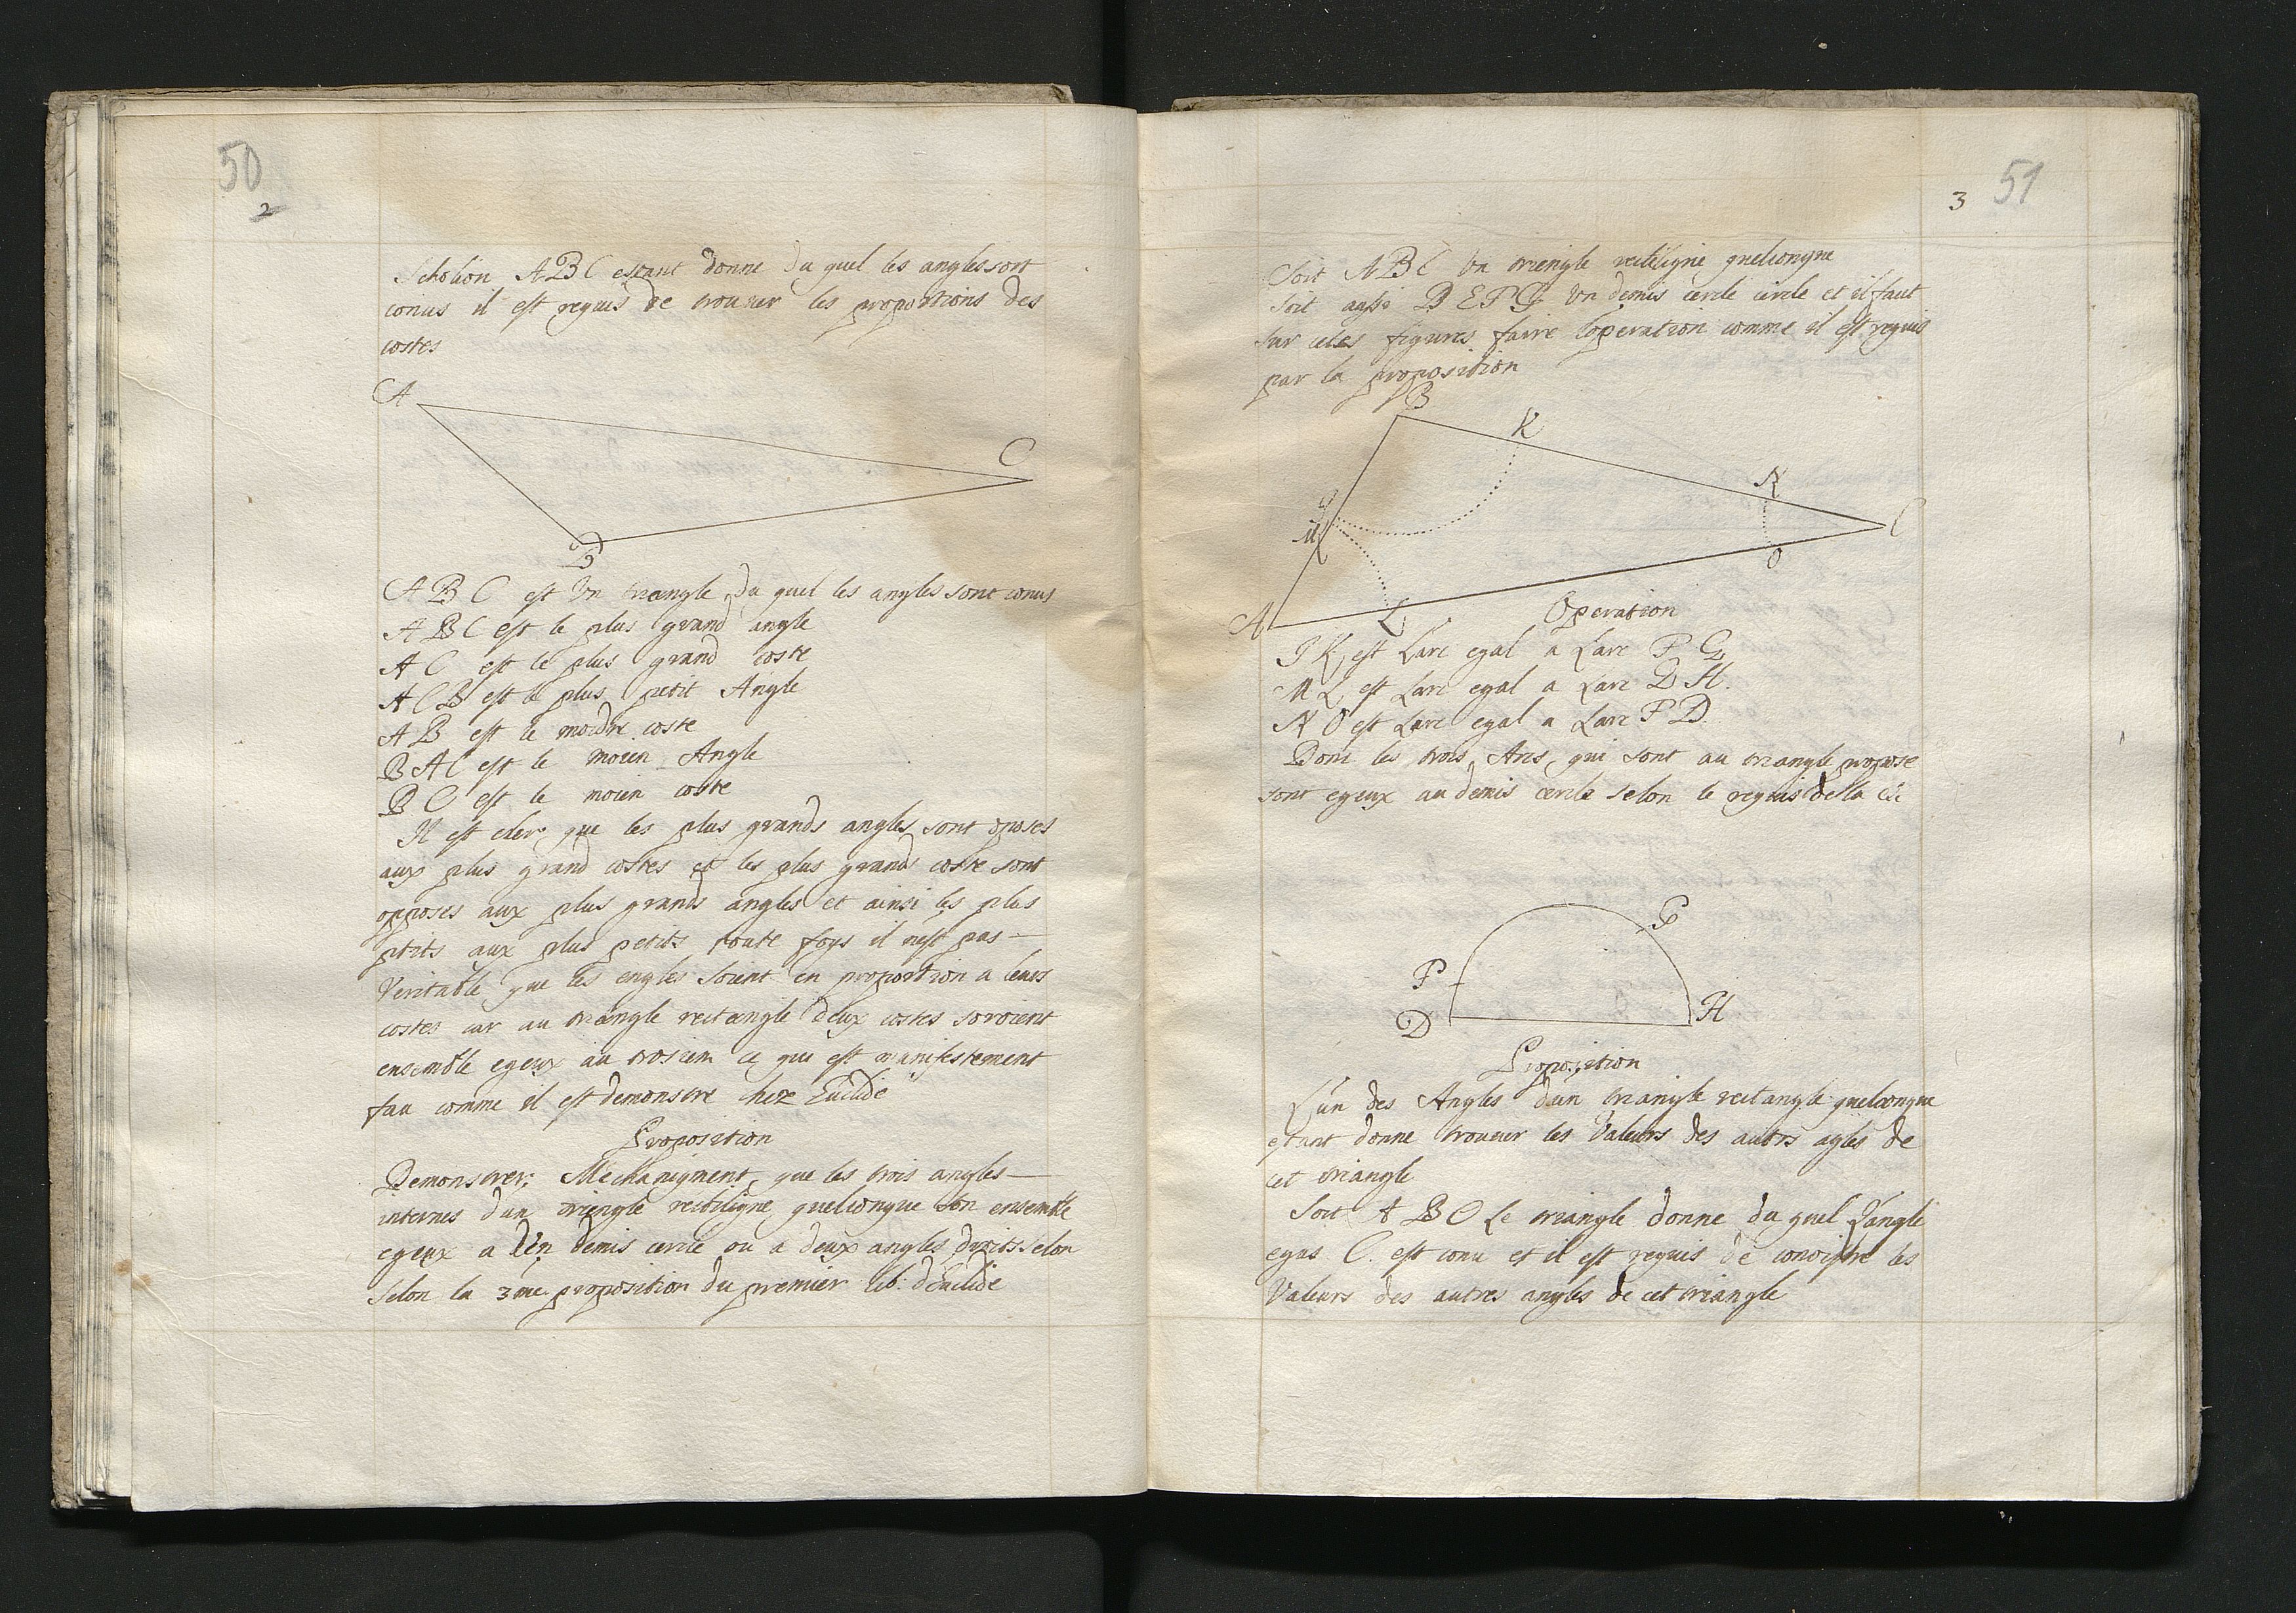 50
2
Scholion ABC estant donne du quel les angles sont
conus il est requis de trouver les proportions des
costes
A
C
B
ABC est Vn triangle du quel les angles sont conus
ABC est le plus grand angle
AC est le plus grand coste
ACB est le plus petit Angle
AB est le moidre coste
BAC est le moien Angle
BC est le moien coste
Il est cler que les plus grands angles sont oposes
aux plus grand costes et les plus grands coste sont
opposes aux plus grands angles et ainsi les plus
ptits aux plus petits toute foys il nest pas —
Veritable que les engles soient en proportion a leurs
costes car au triangle rectangle deux costes soroient
ensemble egeux au trosiem ce que est manifestement
fau comme il est demonstre chez Euclide
Proposition
Demonstrer Mechaniqment que les trois angles —
internes dun triengle rectiligne quelconque son ensemble
egeux a Un demis cercle ou a deux angles droits selon
selon la 3me proposition du premier lib: dEuclide
3 51
Soit ABC Vn triengle rectiligne quelconque
soit aussi DEFG Vn demis cercle circle et il faut
sur celes figures faire loperation comme il est requis
par la proposition
B
K
N
I
M
C
O
A
L
Operation
IK est Larc egal a Larc FG
ML est Larc egal a Larc DH.
NO est Larc egal a Larc FD.
Donc les trois Arcs, qui sont au triangle propose
sont egeux au demis cercle selon le requis della
G
F
D
H
Proposition
L'un des Angles dun triangle rectangle quelconque
etant donne trouver les Valeurs des autrs agles de
cet triangle
Soit ABC Le triangle donne du quel L'angle
egus C. est conu et il est requis de conoistre les
Valeurs des autres angles de cet triangle